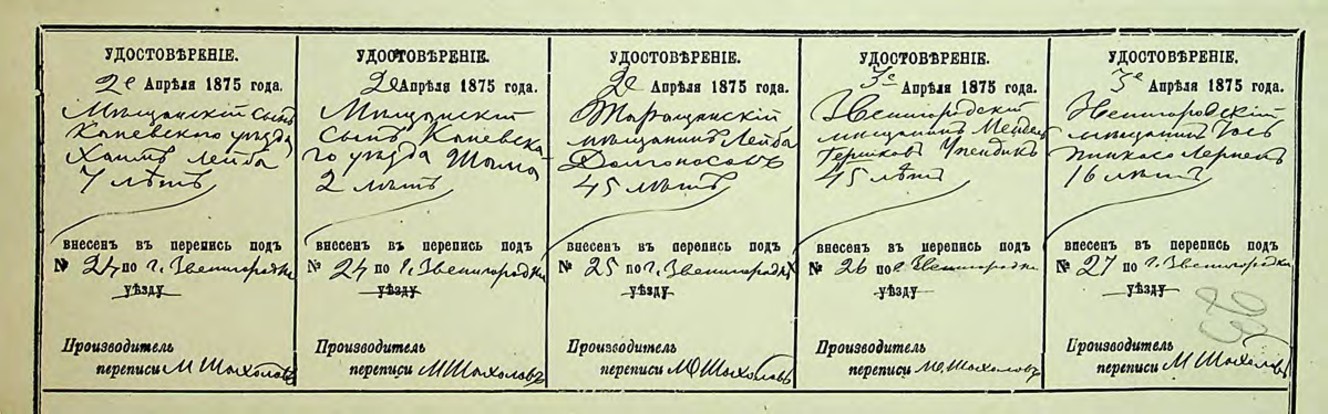 УДОСТОВѢРЕНІЕ.
2е Апрѣля 1875 года.
Мѣщанскій сынъ
Каневского уѣзда
Хаимъ Лейба
7 лѣтъ
внесенъ въ перепись подъ
№ 24 по г. Звенигородки
уѣзду
Производитель
переписи М Шохоловъ
УДОСТОВѢРЕНІЕ.
2е Апрѣля 1875 года.
Мѣщанскій
сынъ Каневска
го уѣзда
2 лѣтъ
внесенъ въ перепись подъ
№ 24 по г. Звенигородки
уѣзду
Производитель
переписи М Шохоловъ
УДОСТОВѢРЕНІЕ.
2е Апрѣля 1875 года.
Таращанскій
мѣщанинъ Лейба
Долгоносовъ
45 лѣтъ
внесенъ въ перепись подъ
№ 25 по г. Звенигородки
уѣзду
Производитель
переписи М Шохоловъ
УДОСТОВѢРЕНІЕ.
3е Апрѣля 1875 года.
Звенигородскій
мѣщанинъ
Гершковъ
45 лѣтъ
внесенъ въ перепись подъ
№ 26 по г. Звенигородки
уѣзду
Производитель
переписи М Шохоловъ
УДОСТОВѢРЕНІЕ.
3е Апрѣля 1875 года.
Звенигородскій
мѣщанинъ Іось
16 лѣтъ
внесенъ въ перепись подъ
№ 27 по г. Звенигородки
уѣзду
Производитель
переписи М Шохоловъ